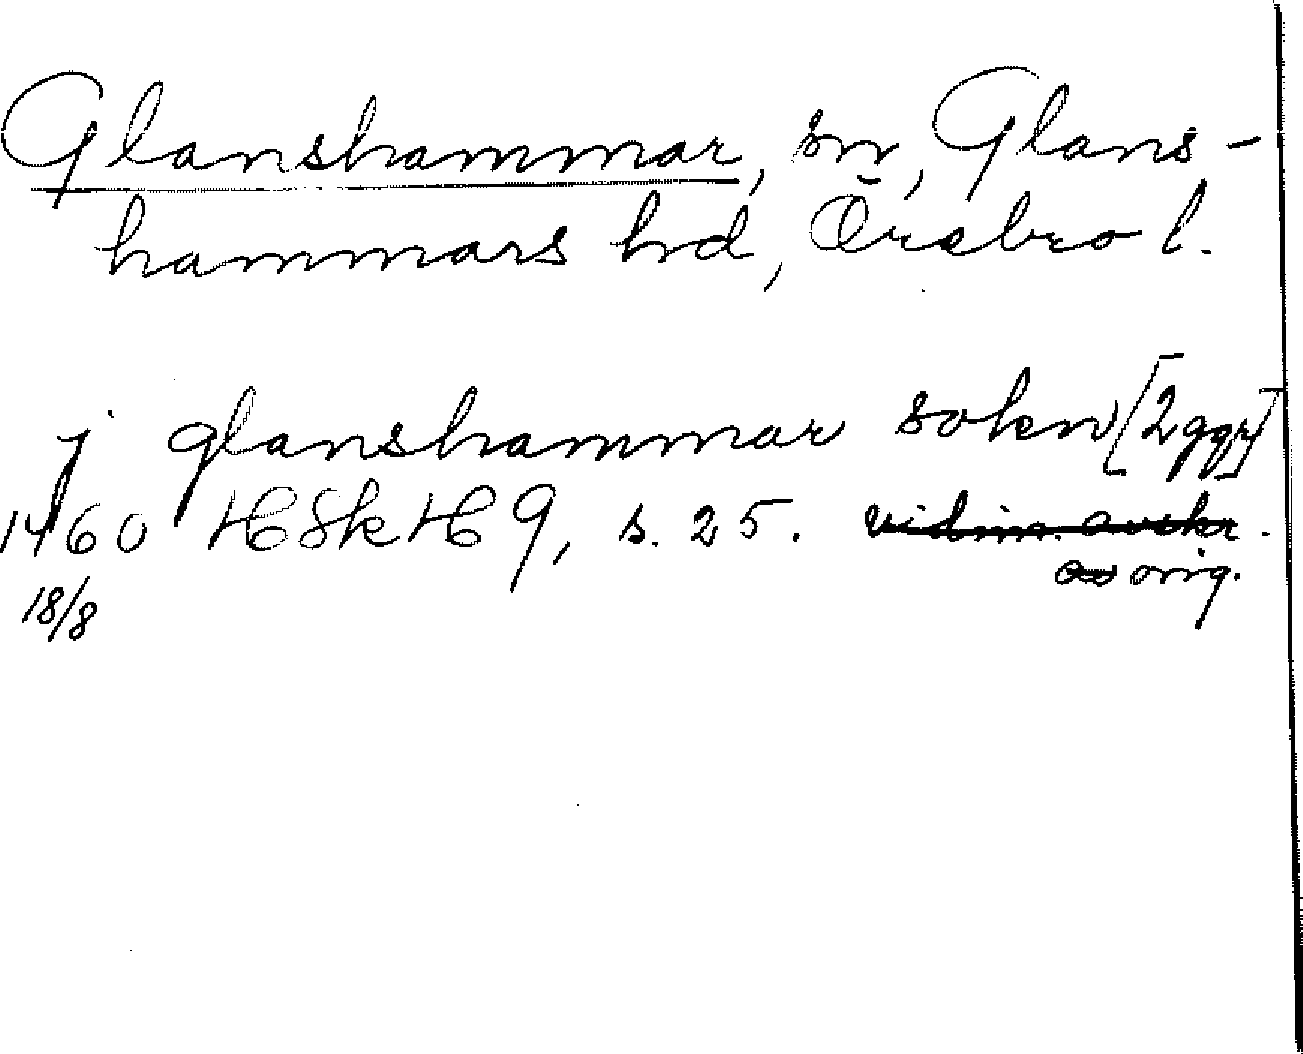 Glanshammar, sn, Glans-
hammars hd, Örebro l.
j glanshammar sokn [2ggr]
1460 HSkH 9, s. 25. vidim. avskr.
18/8 orig.